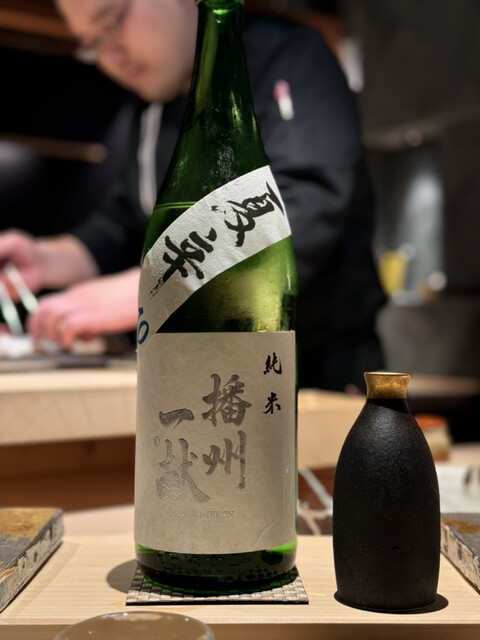 夏辛
10
純米
播州
一献